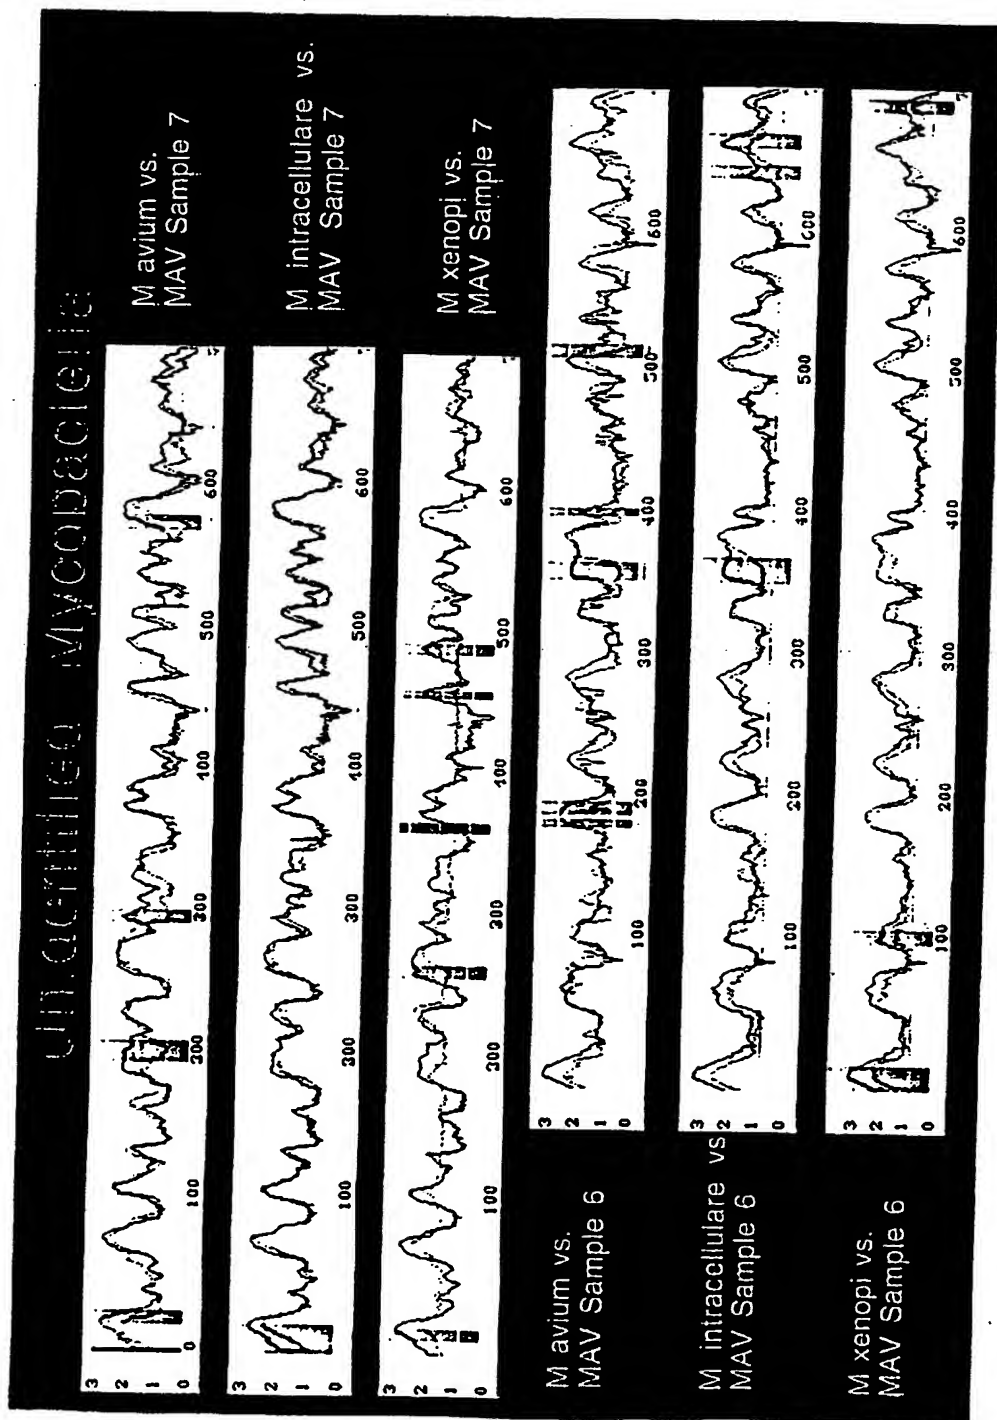 Mycobacteria
3 2 1 0
0 100 200 300 400 500 600
M avium vs.
MAV Sample 7
3 2 1 0
100 200 300 400 500 600
M intracellulare vs.
MAV Sample 7
3 2 1 0
100 200 300 400 500 600
M xenopi vs.
MAV Sample 7
M avium vs.
MAV Sample 6
3 2 1 0
100 200 300 400 500 600
M intracellulare vs
MAV Sample 6
3 2 1 0
100 200 300 400 500 600
M xenopi vs.
MAV Sample 6
3 2 1 0
100 200 300 400 500 600